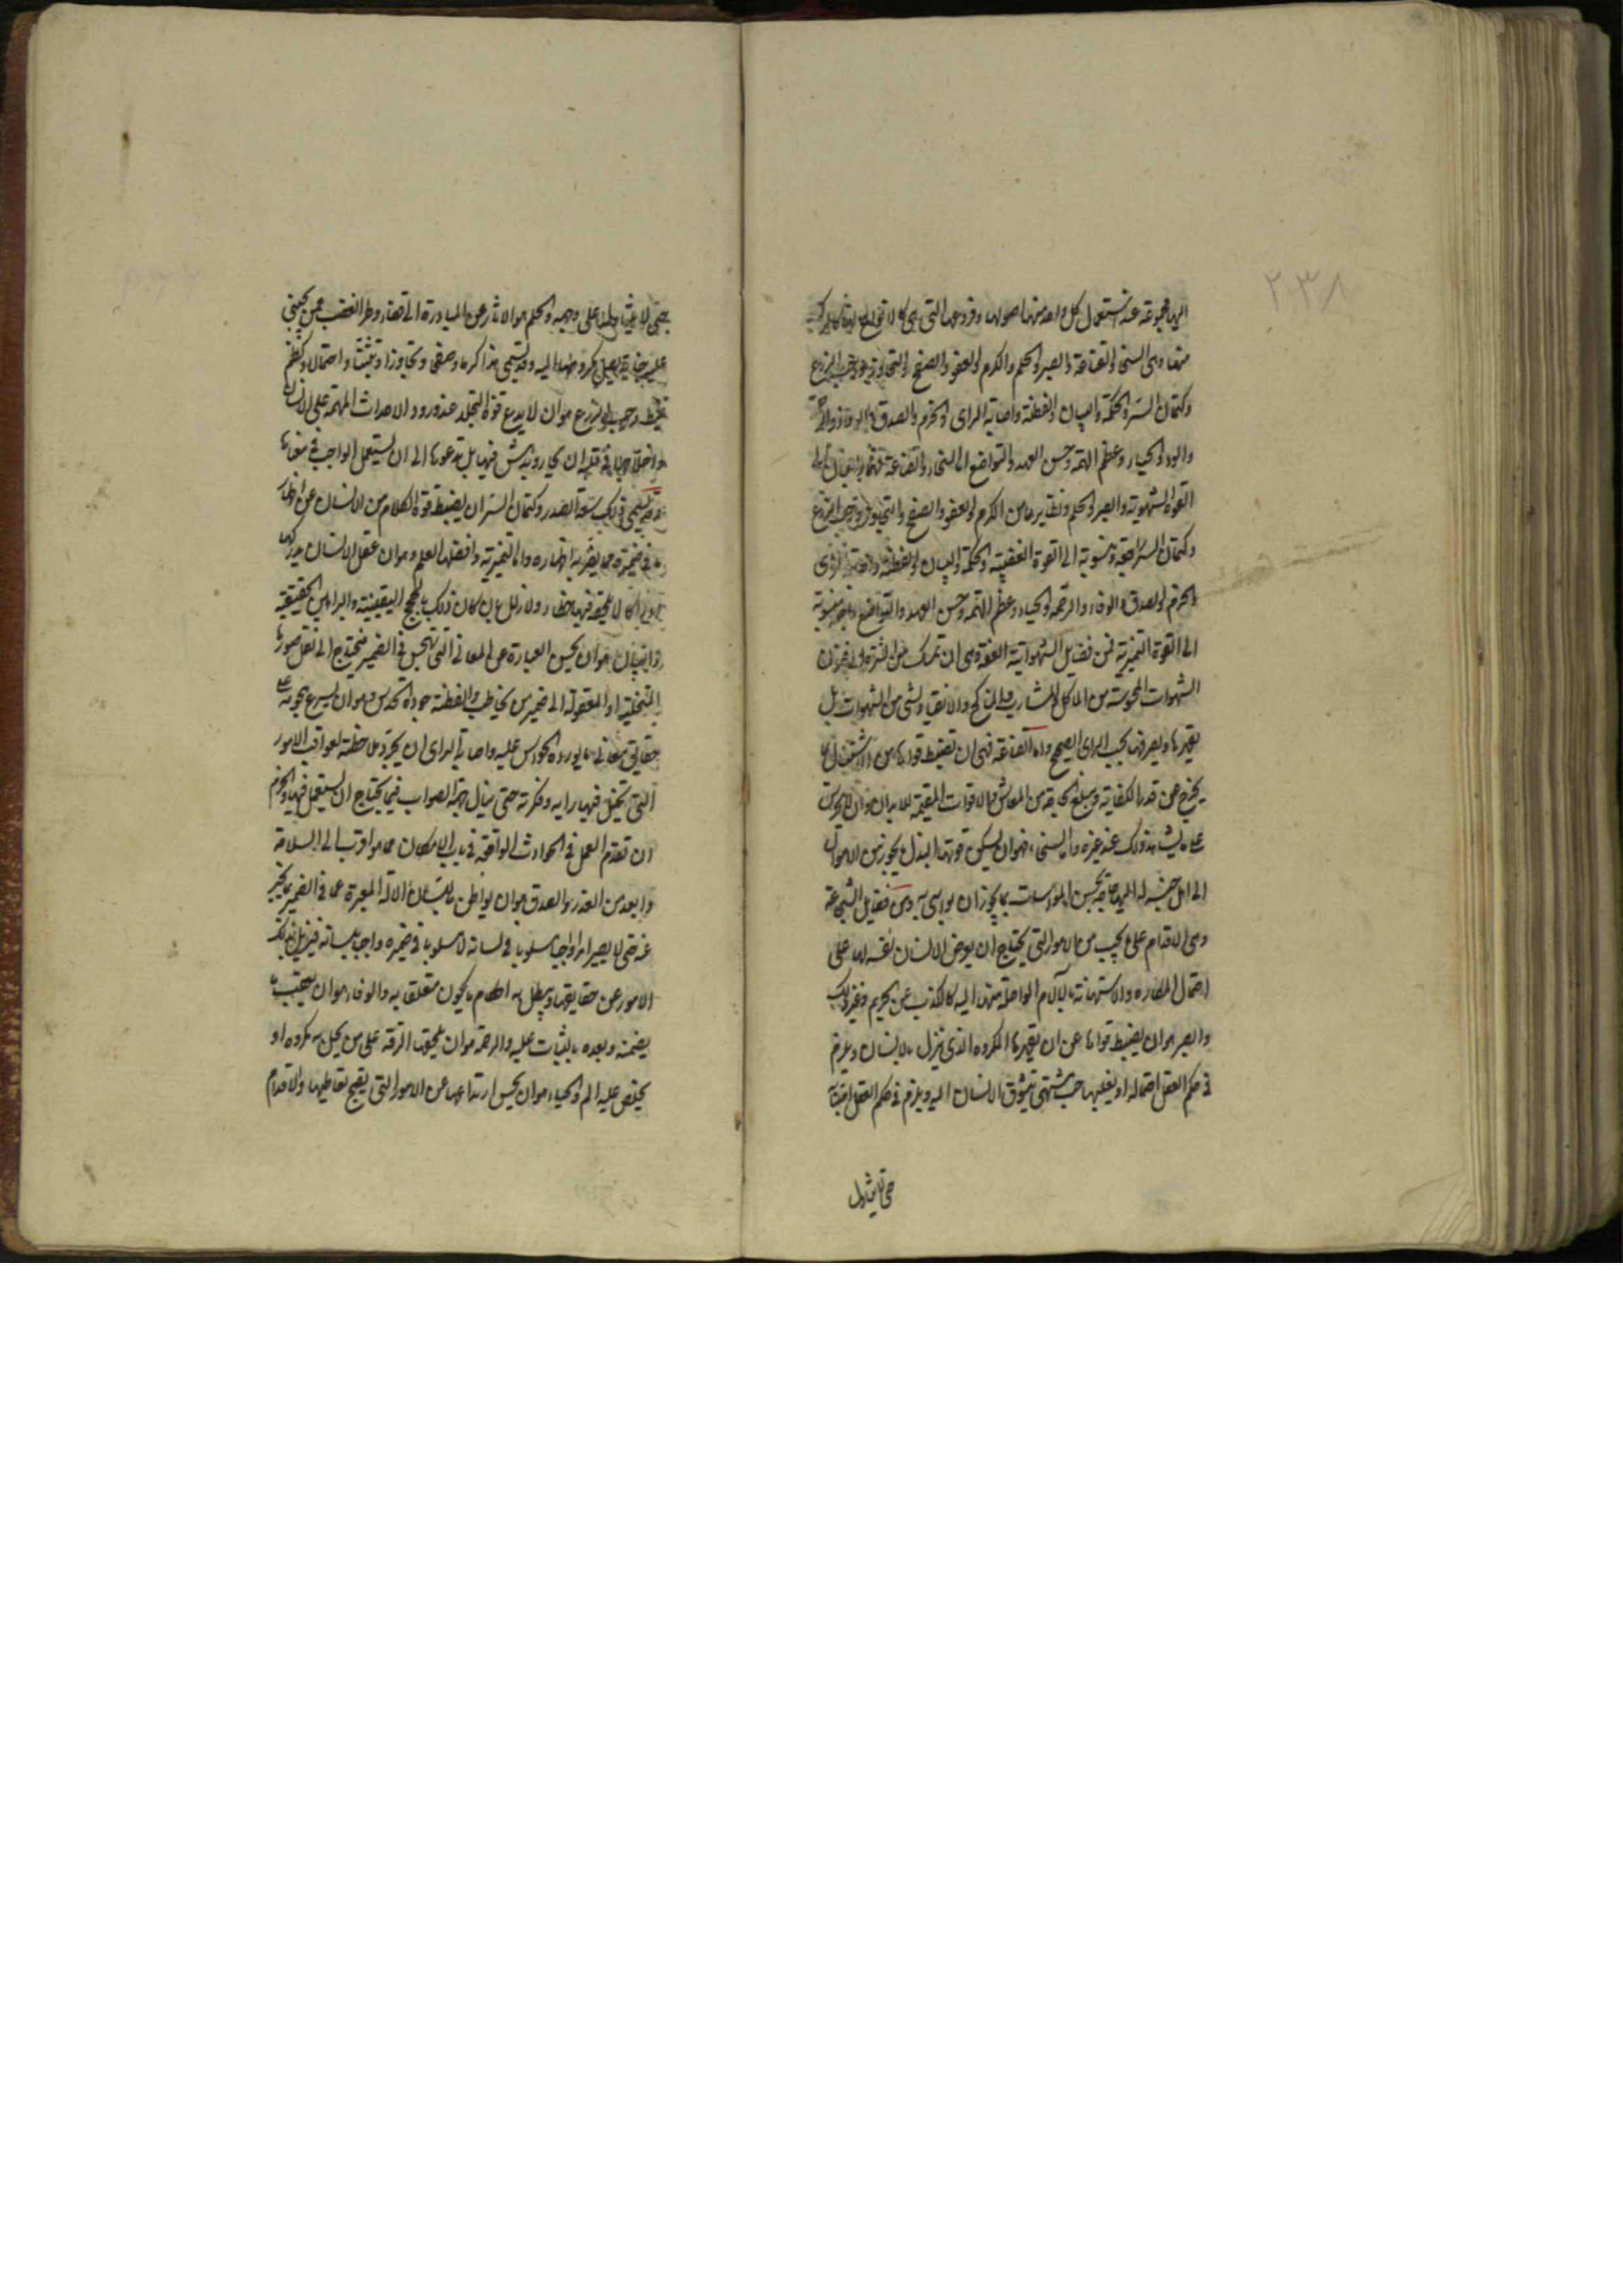 ٢٣٨
اليها مجموعة عند استعمال كل واحد منها اصولها وفروعها التى هى كالانواع لها او كالمركب
منها وهى السخى والقناعة والصبر والحلم والكرم والعفو والصفح والتجاوز ورحب الذرع
وكتمان السر والحكمة والبيان والفطنة واصابة الراى والحزم والصدق والوفاء والرحمة
والود والحياء وعظم الهمة وحسن العهد والتواضع اما السخاء والقناعة فمتعلقان الى
القوة الشهوية والصبر والحلم ونظايرها من الكرم والعفو والصفح والتجاوز ورحب الذرع
وكتمان السر راجعة منسوبة الى القوة الغضبية والحكمة والبيان والفطنة واصابة الراى
والحزم والصدق والوفاء والرحمة والحياء وعظم الهمة وحسن العهد والتواضع راجعة منسوبة
الى القوة التميزية فمن فضايل الشهوانية العفة وهى ان تمسك عن الشره الى فنون
الشهوات المحسوسة من الماكل والمشارب والمناكح والانقياد لشى من الشهوات بل
يقهرها ويصرفها بحسب الراى الصحيح واما القناعة فهى ان تضبط قواها عن الاشتغال بما
يخرج عن قدر الكفاية ومبلغ الحاجة من المعاش والاقوات المقيمة للابدان وان لا يحرص
على ما يشاهد ذلك عند غيره واما السخى فهو ان يسكن قوتها البذل يحوزه من الاموال
الى اهل جنسه له اليها حاجة يحسن المواسات بما يجوز ان يواسى به ومن فضايل الشجاعة
وهى الاقدام على ما يجب من الامور التى يحتاج ان يعرض الانسان نفسه لها على
احتمال المكاره والاستهانة بالآلام الواصلة منها اليه كالذب عن الحريم وغير ذلك
والصبر هو ان يضبط قواها عن ان يقهرها المكروه الذى ينزل بالانسان ويلزم
فى حكم العقل احتماله او يغلبها حب مشتهى يتشوق الانسان اليه ويلزم فى حكم العقل اجتنابه
حتى لا يتناول
حتى لا يتناولها على وجهه والحلم هو الامساك عن المبادرة الى قضاء وطر الغضب ممن يجنى
عليه جناية يصل مكروهها اليه وقد يسمى هذا كرما وصفحا وتجاوزا وتثبتا واحتمالا وكظم
غيظ ورحب الذرع هو ان لا يدع قوة التجلد عند ورود الاحداث المهمة على الانسان
واختلاجها فى قلبه ان يحار ويدهش فيها بل يدعوها الى ان يستعمل الواجب فى معناها
وقد يسمى ذلك سعة الصدر وكتمان السر ان يضبط قوة الكلام من الانسان عن اظهار
ما فى ضميره مما يضر به اظهاره واما التميزية وافضلها العلم وهو ان عقل الانسان يدركها
لا يلحقه فيها خطاء ولا زلل بل ان كان ذلك بالحجج اليقينية والبراهين الحقيقية
والبيان هو ان يحسن العبارة عن المعانى التى تهجس فى الضمير فيحتاج الى نقل صورها
المتخيلة او المعقولة الى ضمير من يخاطبه والفطنة جودة الحدس وهو ان يسرع هجومه على
حقايق معانى ما يورده الحواس عليه واصابة الراى ان يجرد ملاحظته لعواقب الامور
التى تخيل فيها رايه وفكرته حتى ينال جهة الصواب فيما يحتاج ان يستعمل فيها والحزم
ان تقدم العمل فى الحوادث الواقعة فى باب الامكان مما هو اقرب الى السلامة
وابعد من الغدر والصدق هو ان يواطى باللسان الآلة المعبرة عما فى الضمير بما يخبر
عنه حتى لا يصير امرا واجبا مسلوبا فى لسانه لا مسلوبا فى ضميره واجبا بلسانه فيزيل بذلك
الامور عن حقايقها ويبطل به احكام ما يكون متعلقا به والوفاء هو ان يعقب ما
يضمنه ويعده بالثبات عليه والرحمة هو ان يلحقها الرقة على من يحل به مكروه او
يخلص عليه الم والحياء هو ان يحسن ارتداعها عن الامور التى يقبح تعاطيها والاقدام